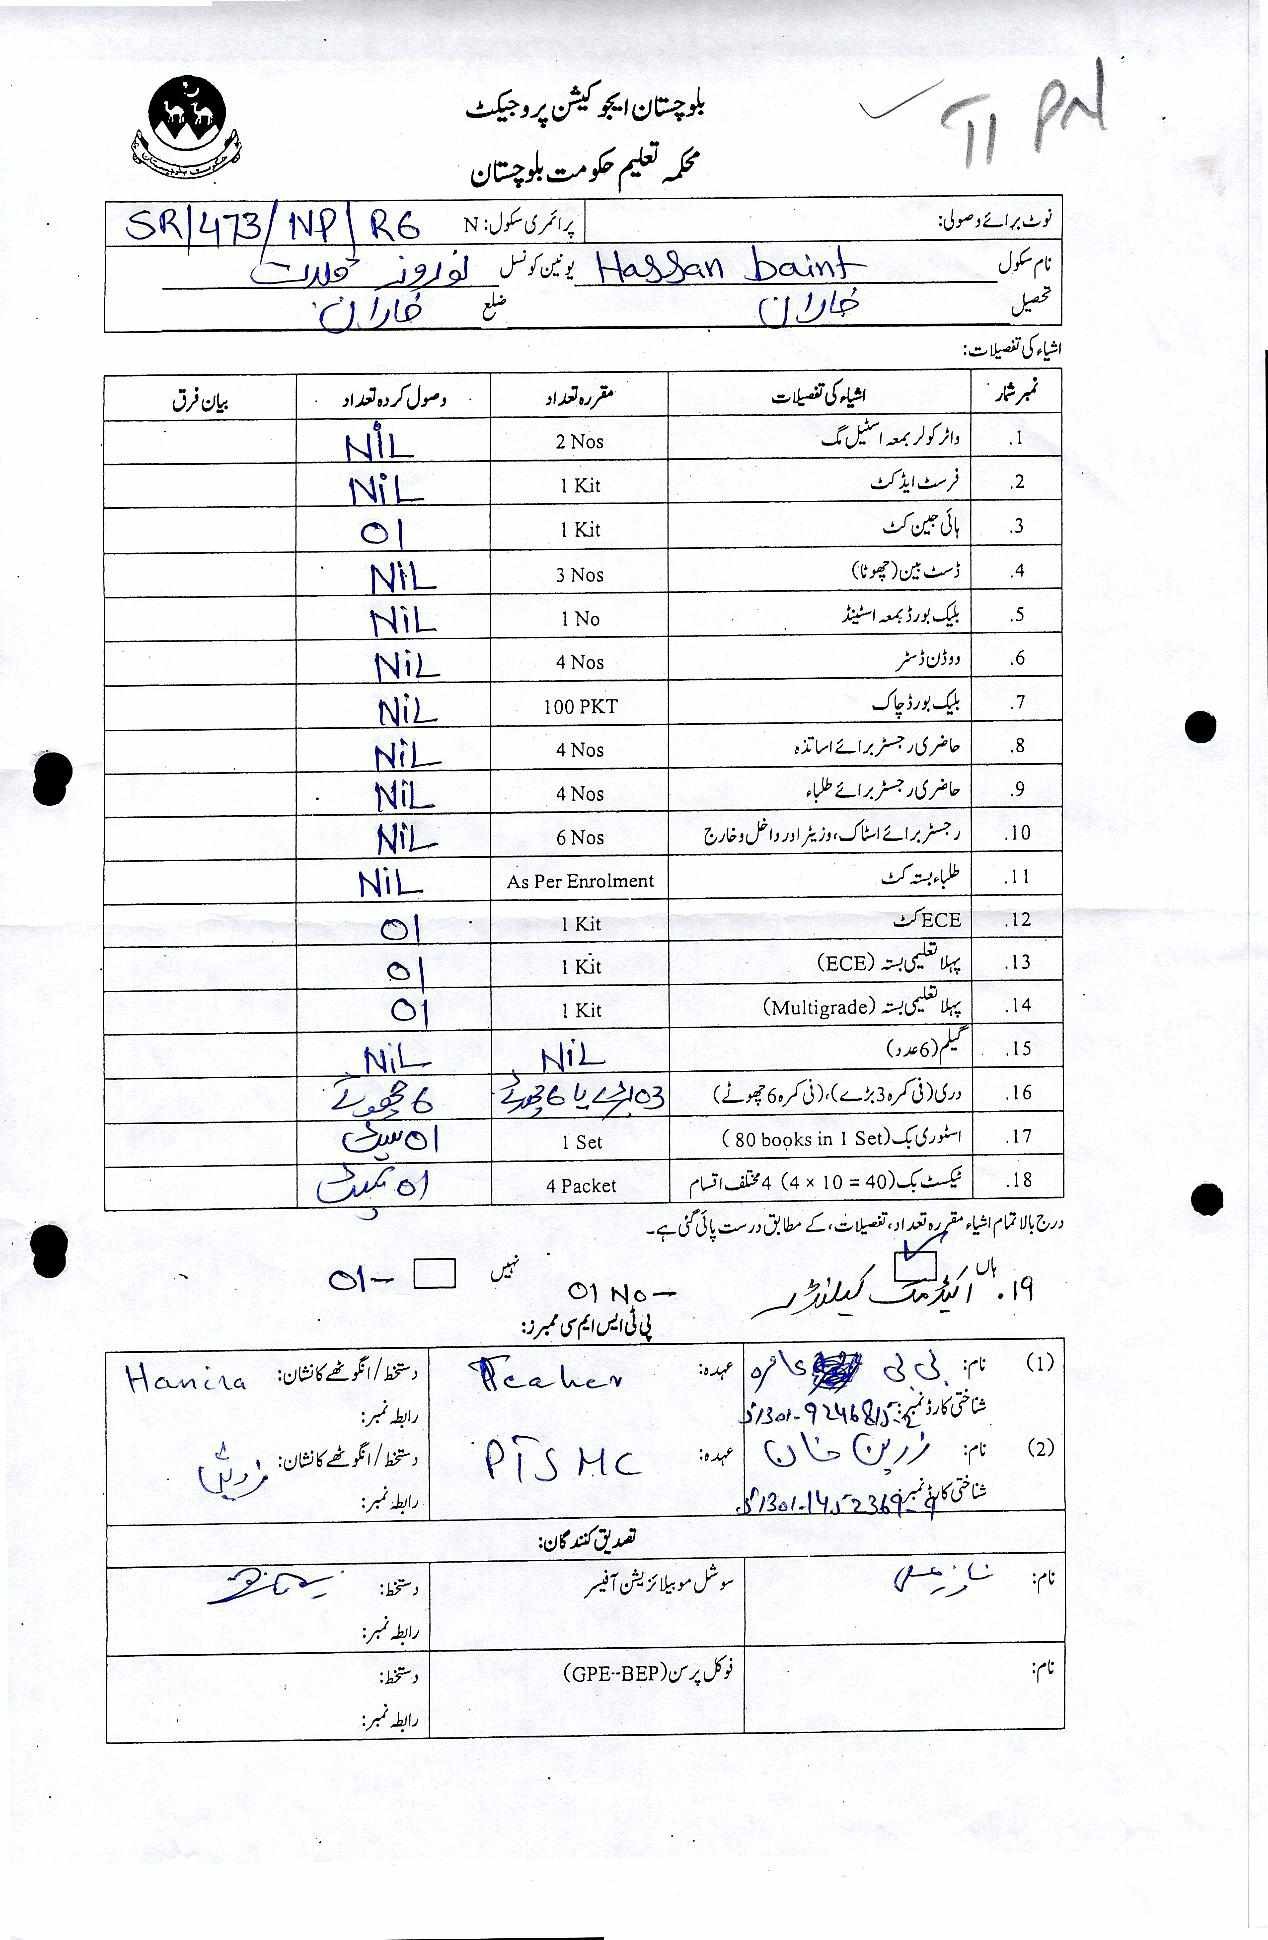 PN
TI
بلوچستان ایجوکیشن پروجیکٹ
محکمہ تعلیم حکومت بلوچستان
نوٹ برائے وصولی: پرائمری سکول: N SR/473/NP/R6
نام سکول Hassan baint یونین کونسل نوروز قلات
تحصیل خاران ضلع خاران
اشیاء کی تفصیلات:
نمبر شمار اشیاء کی تفصیلات مقررہ تعداد وصول کردہ تعداد بیان فرق
1. واٹر کولر بمعہ اسٹیل مگ 2 Nos NiL
2. فرسٹ ایڈ کٹ 1 Kit NiL
3. ہائی جین کٹ 1 Kit 01
4. ڈسٹ بین (چھوٹا) 3 Nos NiL
5. بلیک بورڈ بمعہ اسٹینڈ 1 No NiL
6. ووڈن ڈسٹر 4 Nos NiL
7. بلیک بورڈ چاک 100 PKT NiL
8. حاضری رجسٹر برائے اساتذہ 4 Nos NiL
9. حاضری رجسٹر برائے طلباء 4 Nos NiL
10. رجسٹر برائے اسٹاک، وزیٹر اور داخل و خارج 6 Nos NiL
11. طلباء بستہ کٹ As Per Enrolment NiL
12. ECE کٹ 1 Kit 01
13. پہلا تعلیمی بستہ (ECE) 1 Kit 01
14. پہلا تعلیمی بستہ (Multigrade) 1 Kit 01
15. گیلم (6 عدد) NiL NiL
16. دری (فی کمرہ 3 بڑے)، (فی کمرہ 6 چھوٹے) 03 بڑے یا 6 چھوٹے 6 چھوٹے
17. اسٹوری بک (80 books in 1 Set) 1 Set 01 سیٹ
18. ٹیکسٹ بک (4 x 10 = 40) 4 مختلف اقسام 4 Packet 01 پیکٹ
درج بالا تمام اشیاء مقررہ تعداد، تفصیلات، کے مطابق درست پائی گئی ہے۔
ہاں نہیں 01-
19. اکیڈمک کیلنڈر 01 No-
پی ٹی ایس ایم سی ممبرز:
(1) نام: بی بی عہدہ: Teaher دستخط/انگوٹھے کا نشان: Hanira
شناختی کارڈ نمبر: رابطہ نمبر:
(2) نام: زرین خان عہدہ: PTSMC دستخط/انگوٹھے کا نشان:
شناختی کارڈ نمبر: 51301-1452369-9 رابطہ نمبر:
تصدیق کنندگان:
نام: سوشل موبیلائزیشن آفیسر دستخط:
رابطہ نمبر:
نام: فوکل پرسن (GPE-BEP) دستخط:
رابطہ نمبر: